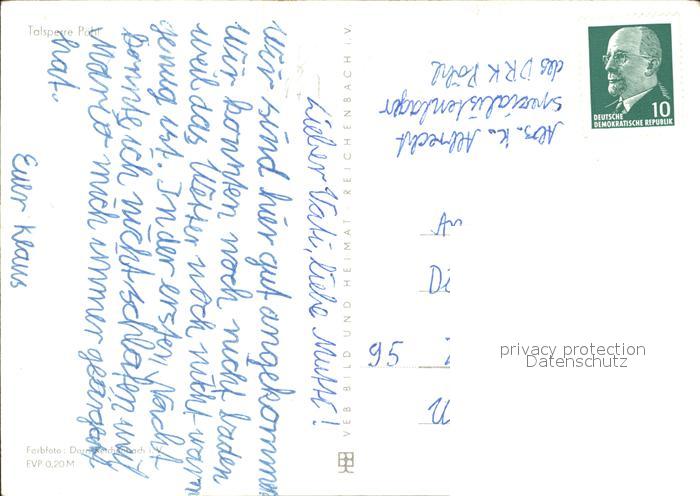 Talsperre Pöhl
Lieber Vati, liebe Mutti!
Wir sind hier gut angekomm
Wir konnten noch nicht baden
weil das Wetter noch nicht warm
genug ist. In der ersten Nacht
konnte ich nicht schlafen weil
Mario mich immer geärgert
hat.
Euer Klaus
Farbfoto: Darr, Reichenbach i. V.
EVP 0,20 M
VEB BILD UND HEIMAT REICHENBACH i. V.
Abs. K. Albrecht
Spezialistenlager
des DRK Pöhl
10
DEUTSCHE
DEMOKRATISCHE REPUBLIK
An
Di
95
privacy protection
Datenschutz